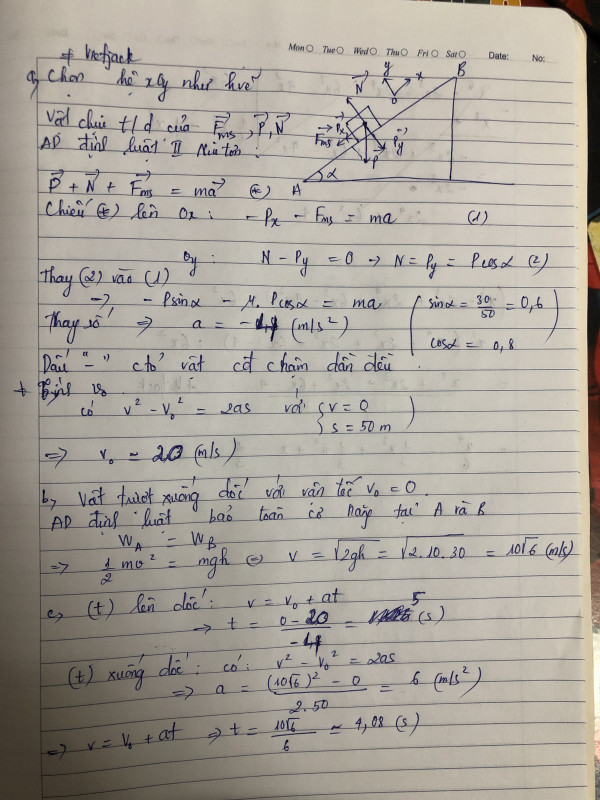 Mon Tue Wed Thu Fri Sat Date: No:
+ Vietjack
a, Chọn hệ xOy như hvẽ
Vật chịu t/d của F⃗ms, P⃗, N⃗
AD định luật II Niu tơn:
P⃗ + N⃗ + F⃗ms = ma⃗ (*)
N⃗ y x O B
F⃗ms P⃗x P⃗y P⃗
A α
Chiếu (*) lên Ox: -Px - Fms = ma (1)
Oy: N - Py = 0 → N = Py = Pcosα (2)
Thay (2) vào (1)
→ -Psinα - μ.Pcosα = ma
sinα = 30/50 = 0,6
cosα = 0,8
Thay số ⇒ a = - (m/s²)
Dấu "-" ctỏ vật cđ chậm dần đều.
+ Tính v₀
có v² - v₀² = 2as với { v = 0
s = 50 m
⇒ v₀ ≈ 20 (m/s)
b, Vật trượt xuống dốc với vận tốc v₀ = 0.
AD định luật bảo toàn cơ năng tại A và B
W_A = W_B
⇒ 1/2 mv² = mgh ⇔ v = √2gh = √2.10.30 = 10√6 (m/s)
c, (t) lên dốc: v = v₀ + at
⇒ t = (0 - 20)/- = 5 (s)
(t) xuống dốc: có: v² - v₀² = 2as
⇒ a = ((10√6)² - 0)/2.50 = 6 (m/s²)
⇒ v = v₀ + at ⇒ t = 10√6/6 ≈ 4,08 (s)